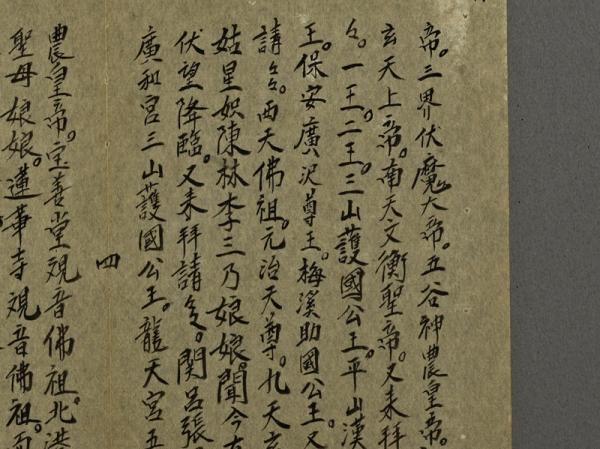 帝。三界伏魔大帝。五谷神農皇帝。
玄天上帝。南天文衡聖帝。又来拜
々。一王。二王。三山護國公王。平山漢
王。保安廣沢尊王。梅溪助國公王。又
請々。西天佛祖。元治天尊。九天玄
姑星娘陳林李三乃娘娘。聞今
伏望降臨。又来拜請々。関呂張
廣和宮三山護國公王。龍天宮五
四
農皇帝。宝善堂観音佛祖。北港
聖母娘娘。蓮華寺観音佛祖。